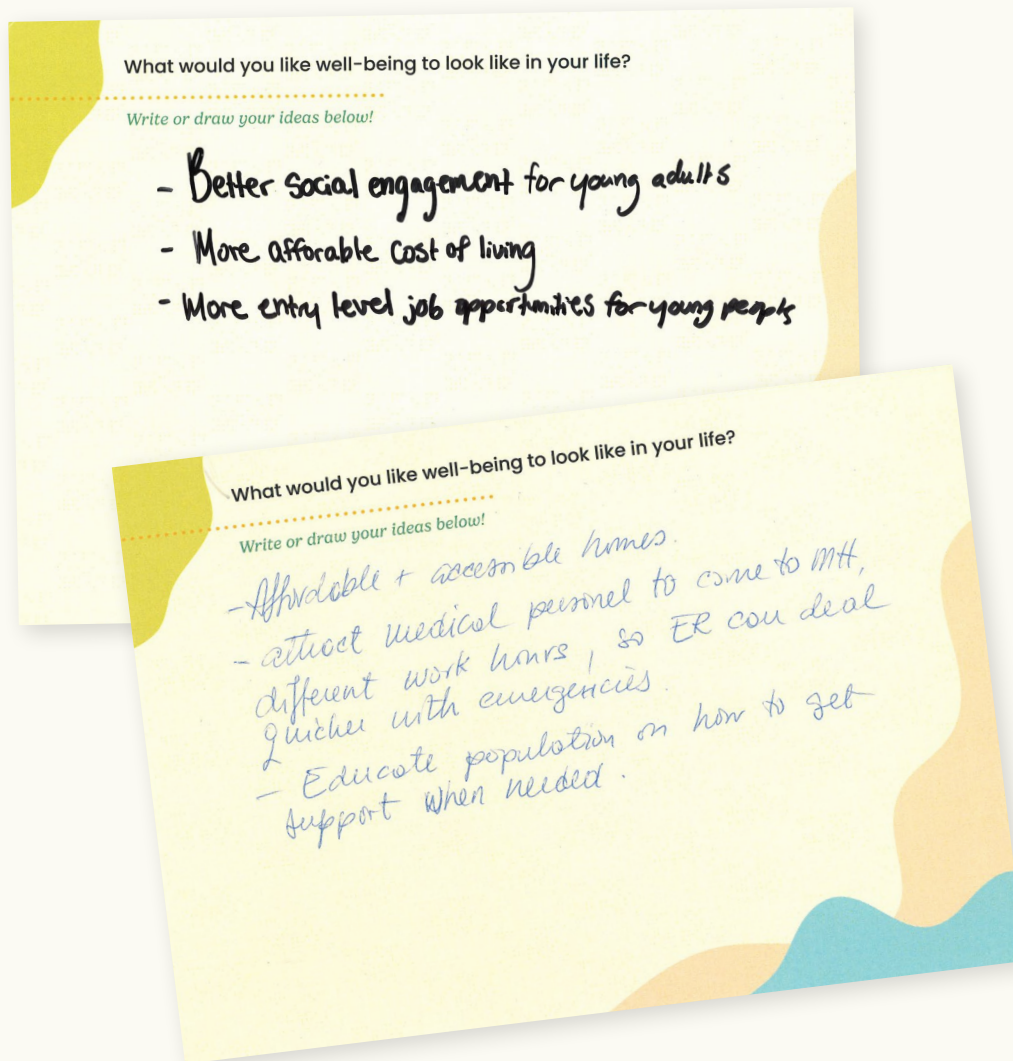 What would you like well-being to look like in your life?
Write or draw your ideas below!
- Better social engagement for young adults
- More afforable cost of living
- More entry level job opportunities for young people
What would you like well-being to look like in your life?
Write or draw your ideas below!
- Affordable + accessible homes.
- attract medical personel to come to MH,
different work hours, so ER can deal
quicker with emergencies.
- Educate population on how to get
support when needed.